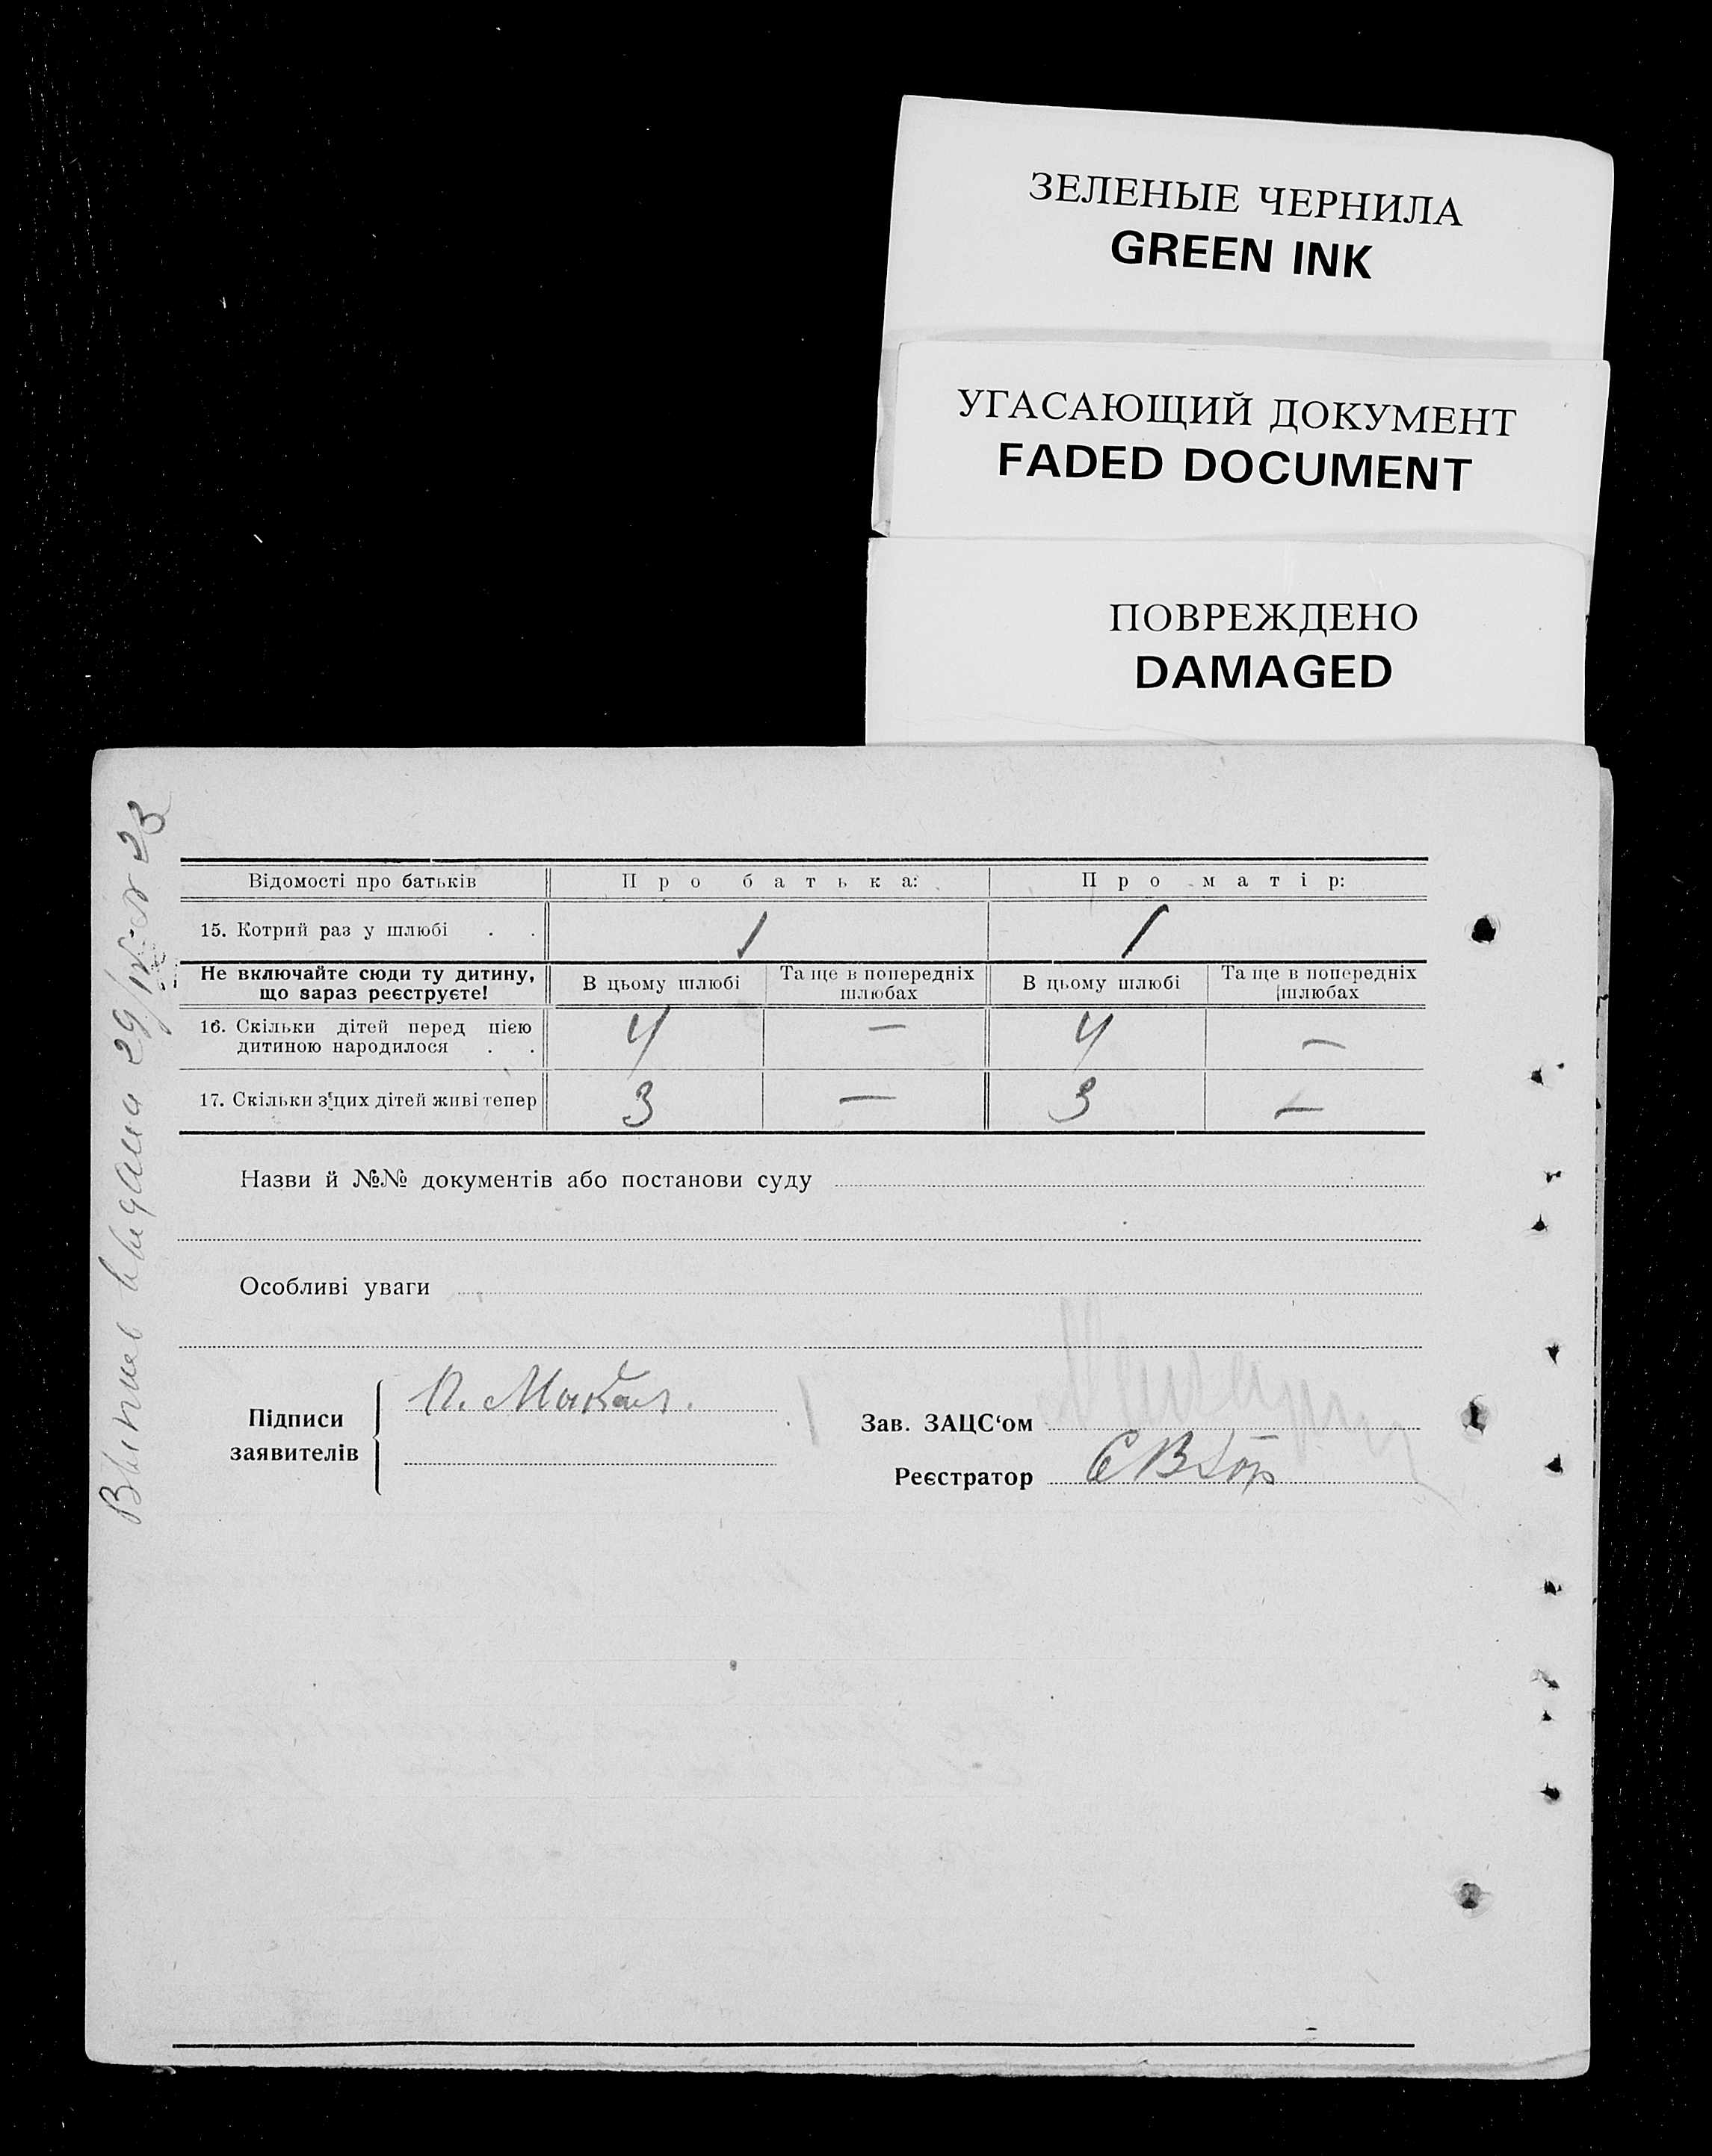 ЗЕЛЕНЫЕ ЧЕРНИЛА
GREEN INK
УГАСАЮЩИЙ ДОКУМЕНТ
FADED DOCUMENT
ПОВРЕЖДЕНО
DAMAGED
Відомості про батьків Про батька: Про матір:
15. Котрий раз у шлюбі . . 1 1
Не включайте сюди ту дитину, що зараз реєструєте! В цьому шлюбі Та ще в попередніх шлюбах В цьому шлюбі Та ще в попередніх шлюбах
16. Скільки дітей перед цією
дитиною народилося . . 4 — 4 —
17. Скільки з цих дітей живі тепер 3 — 3 —
Назви й №№ документів або постанови суду
Особливі уваги
Підписи
заявителів
Зав. ЗАЦС‘ом
Реєстратор
29/IV